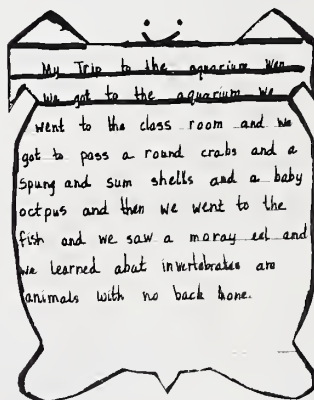 My Trip to the aquarium Wen
We got to the aquarium We
went to the class room and we
got to pass a round crabs and a
spung and sum shells and a baby
octpus and then we went to the
fish and we saw a moray eel and
we learned abut invertebrates are
animals with no back bone.